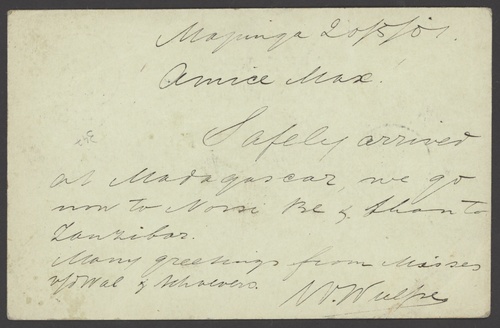 Majunga 20/5/01.
Amice Max!
Safely arrived
at Madagascar, we go
now to Nosse Be & than to
Zanzibar.
Many greetings from Misses
v/d Wal &